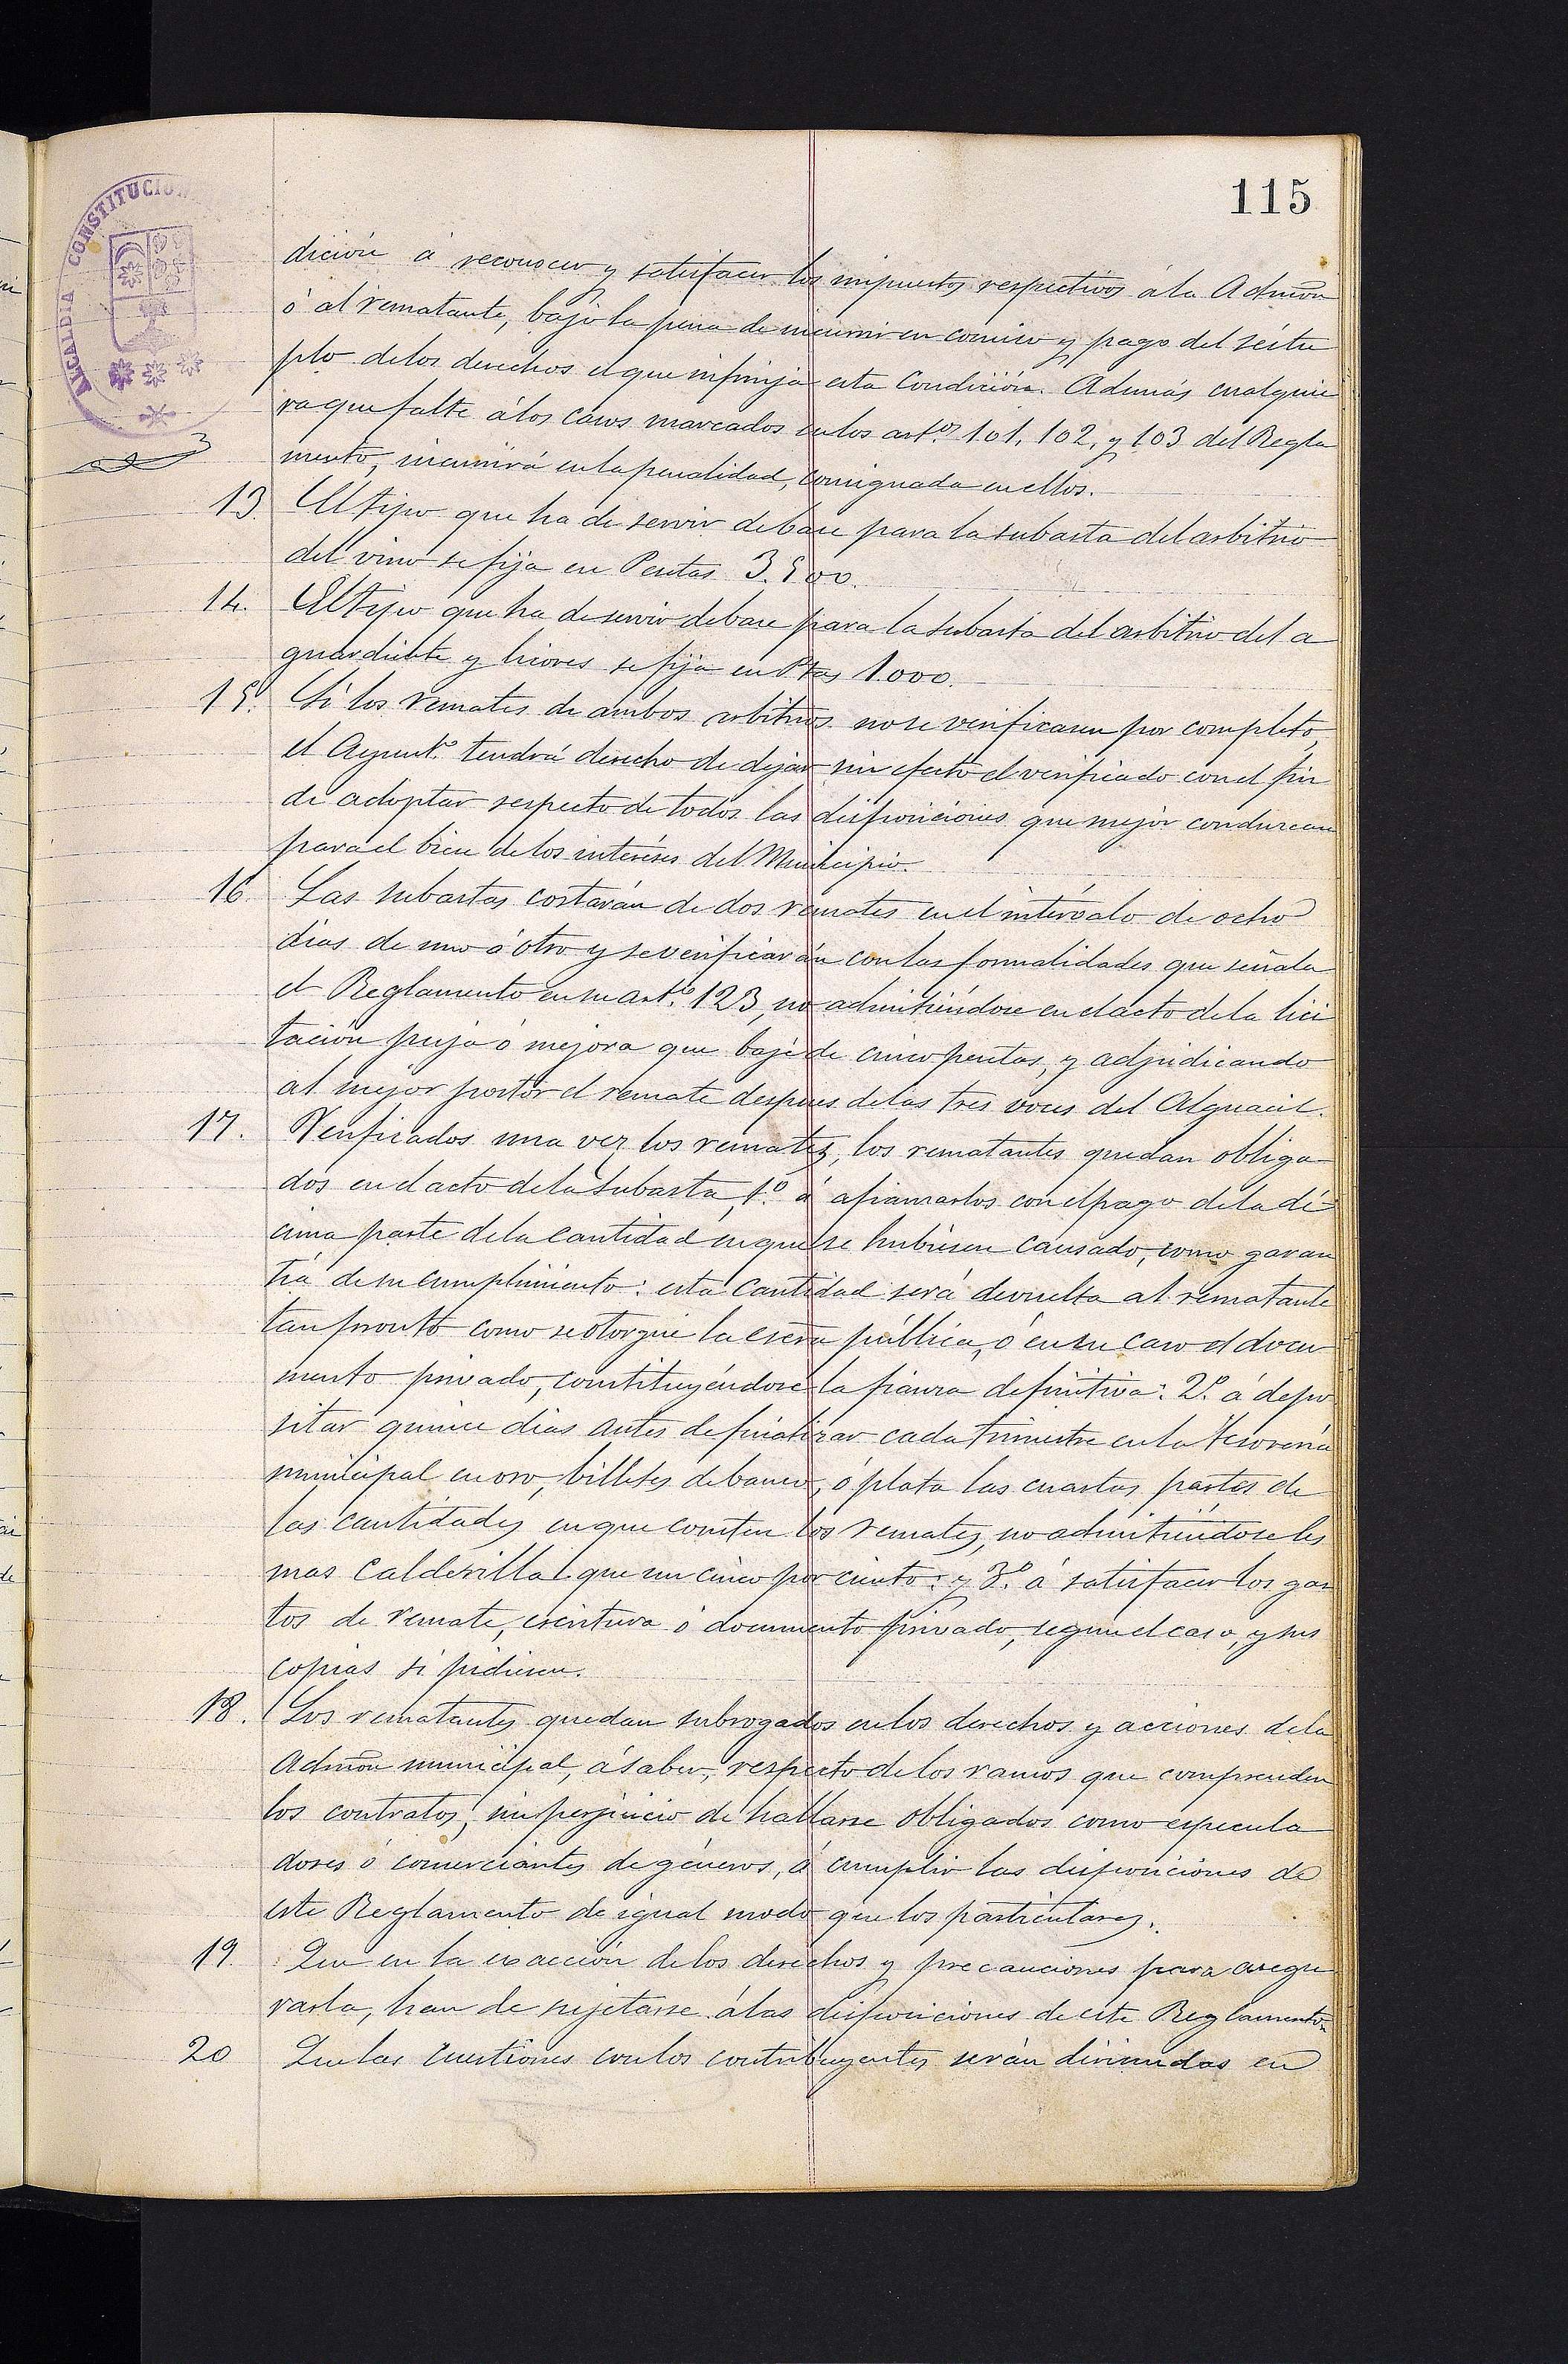 115
ALCALDIA CONSTITUCION
dición á reconocer y satisfacer los impuestos respectivos á la Admon
ó al rematante, bajo la pena de incurrir en comiso y pago del séstu
plo de los derechos el que infrinja esta Condición. Además cualquie
ra que falte á los casos marcados en los artos 101, 102, y 103 del Regla
mento, incurrirá en la penalidad, consignada en ellos.
13. El tipo que ha de servir de base para la subasta del arbitrio
del vino se fija en Pesetas 3.500.
14. El tipo que ha de servir de base para la subasta del arbitrio del a
guardiente y licores se fija en Ptas 1.000.
15. Si los remates de ambos arbitrios no se verificasen por completo,
el Ayunto. tendrá derecho de dejar sin efecto el verificado con el fin
de adoptar respecto de todos las disposiciones que mejor conduzcan
para el bien de los interéses del Municipio.
16. Las subastas costarán de dos remates en el intérvalo de ocho
dias de uno á otro y se verificarán con las formalidades que señala
el Reglamento en su arto. 123, no admitiéndose en el acto de la lici
tación puja ó mejora que baje de cinco pesetas, y adjudicando
al mejor postor el remate despues de las tres voces del Alguacil.
17. Verificados una vez los remates, los rematantes quedan obliga
dos en el acto de la subasta, 1.º á afianzarlos con el pago de la dé-
cima parte de la cantidad en que se hubiesen causado, como garan
tía de su cumplimiento: esta cantidad será devuelta al rematante
tan pronto como se otorgue la escra pública, ó en su caso el docu
mento privado, constituyéndose la fianza definitiva: 2.º á depo
sitar quince dias antes de finalizar cada trimestre en la Tesorería
municipal en oro, billetes de banco, ó plata las cuartas partes de
las cantidades en que consten los remates, no admitiéndoseles
mas calderilla que un cinco por ciento: y 3.º á satisfacer los gas
tos de remate, escritura ó documento privado, segun el caso, y sus
copias si pidiesen.
18. Los rematantes quedan subrogados en los derechos y acciones de la
Admon municipal, á saber, respecto de los ramos que comprenden
los contratos, sin perjuicio de hallarse obligados como especula
dores ó comerciantes de géneros, á cumplir las disposiciones de
este Reglamento de igual modo que los particulares.
19. Que en la exacción de los derechos y precauciones para asegu
rarla, han de sujetarse á las disposiciones de este Reglamento.
20 Que las cuestiones con los contribuyentes serán dirimidas en